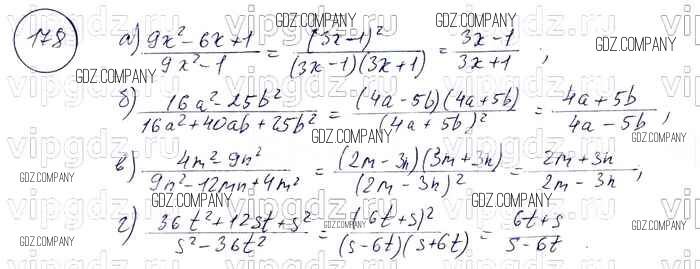 178 а) (9x² - 6x + 1)/(9x² - 1) = (3x - 1)²/((3x - 1)(3x + 1)) = (3x - 1)/(3x + 1) ;
б) (16a² - 25b²)/(16a² + 40ab + 25b²) = ((4a - 5b)(4a + 5b))/(4a + 5b)² = (4a + 5b)/(4a - 5b) ;
в) (4m² - 9n²)/(9n² - 12mn + 4m²) = ((2m - 3n)(3m + 3n))/(2m - 3n)² = (2m + 3n)/(2m - 3n) ;
г) (36t² + 12st + s²)/(s² - 36t²) = (6t + s)²/((s - 6t)(s + 6t)) = (6t + s)/(s - 6t) .
GDZ.COMPANY
vipgdz.ru